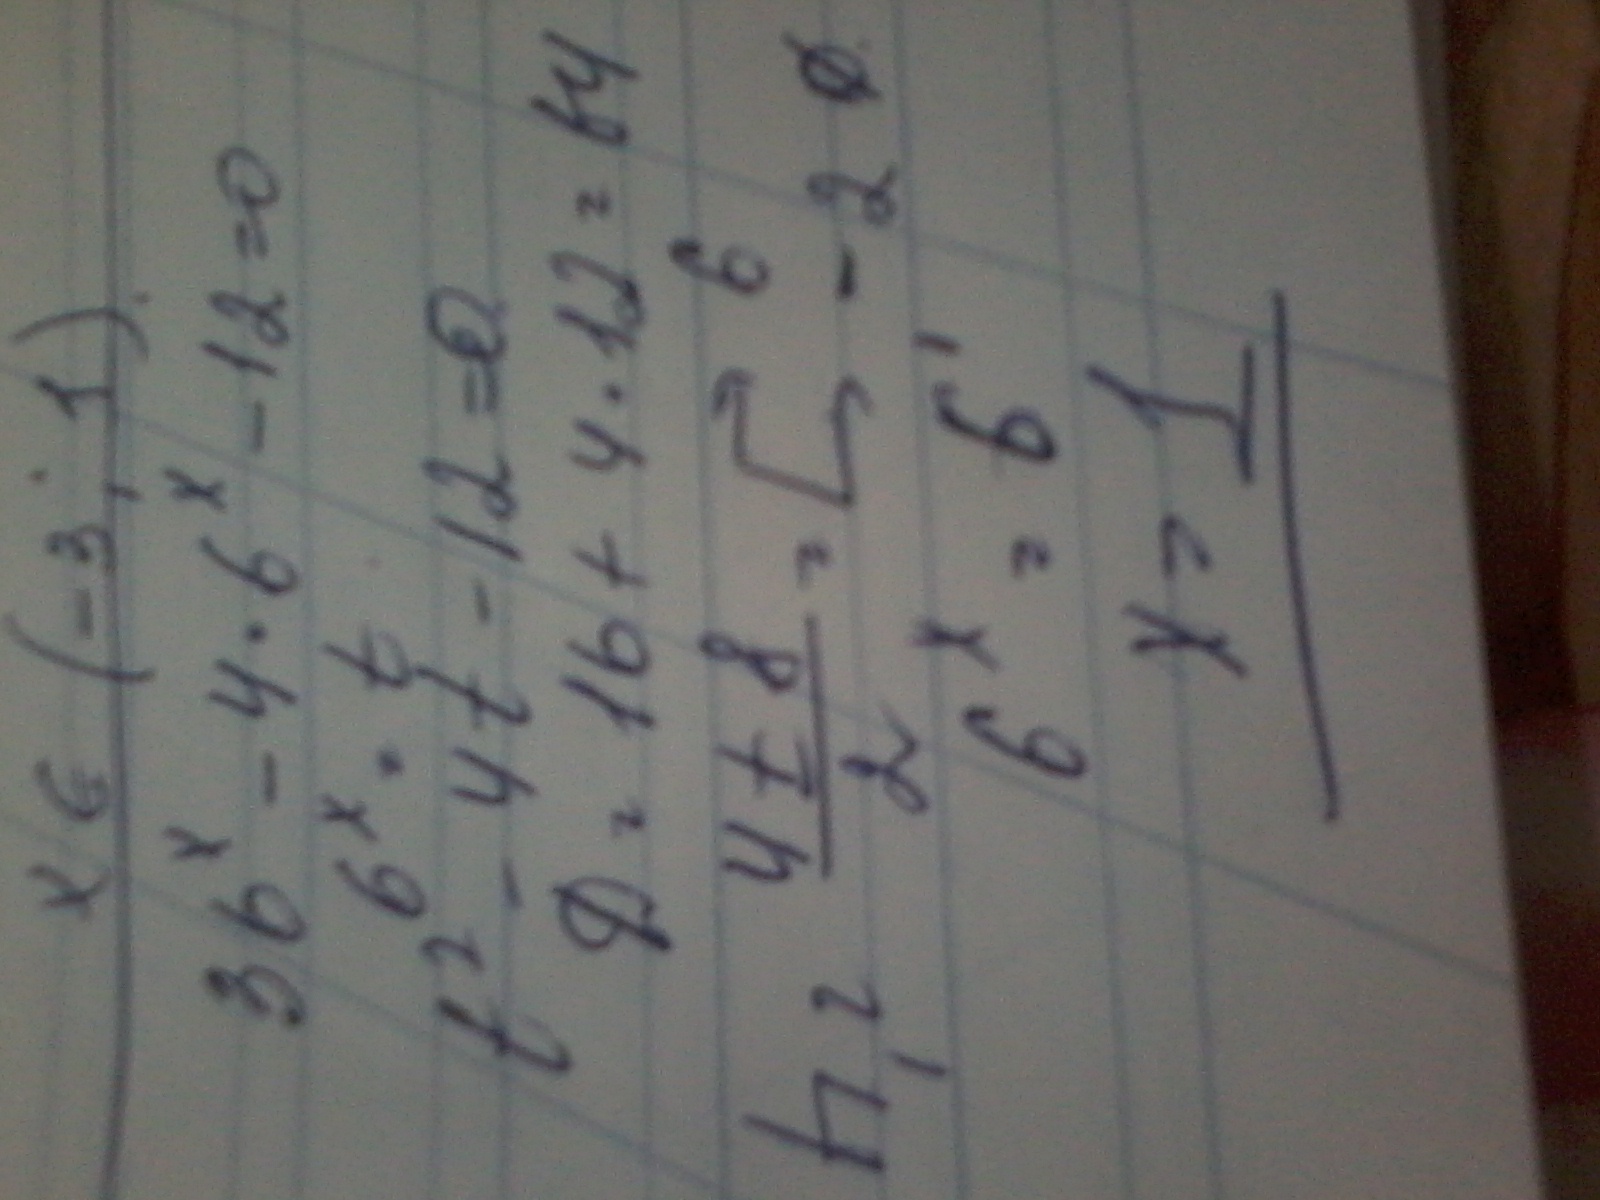 x ∈ (-3; 1).
36ˣ - 4·6ˣ - 12 = 0
6ˣ = t
t² - 4t - 12 = 0
D = 16 + 4·12 = 64
t₁ = 4 ± 8 / 2 = [ 6
-2 ∅
6ˣ = 6¹
x = 1